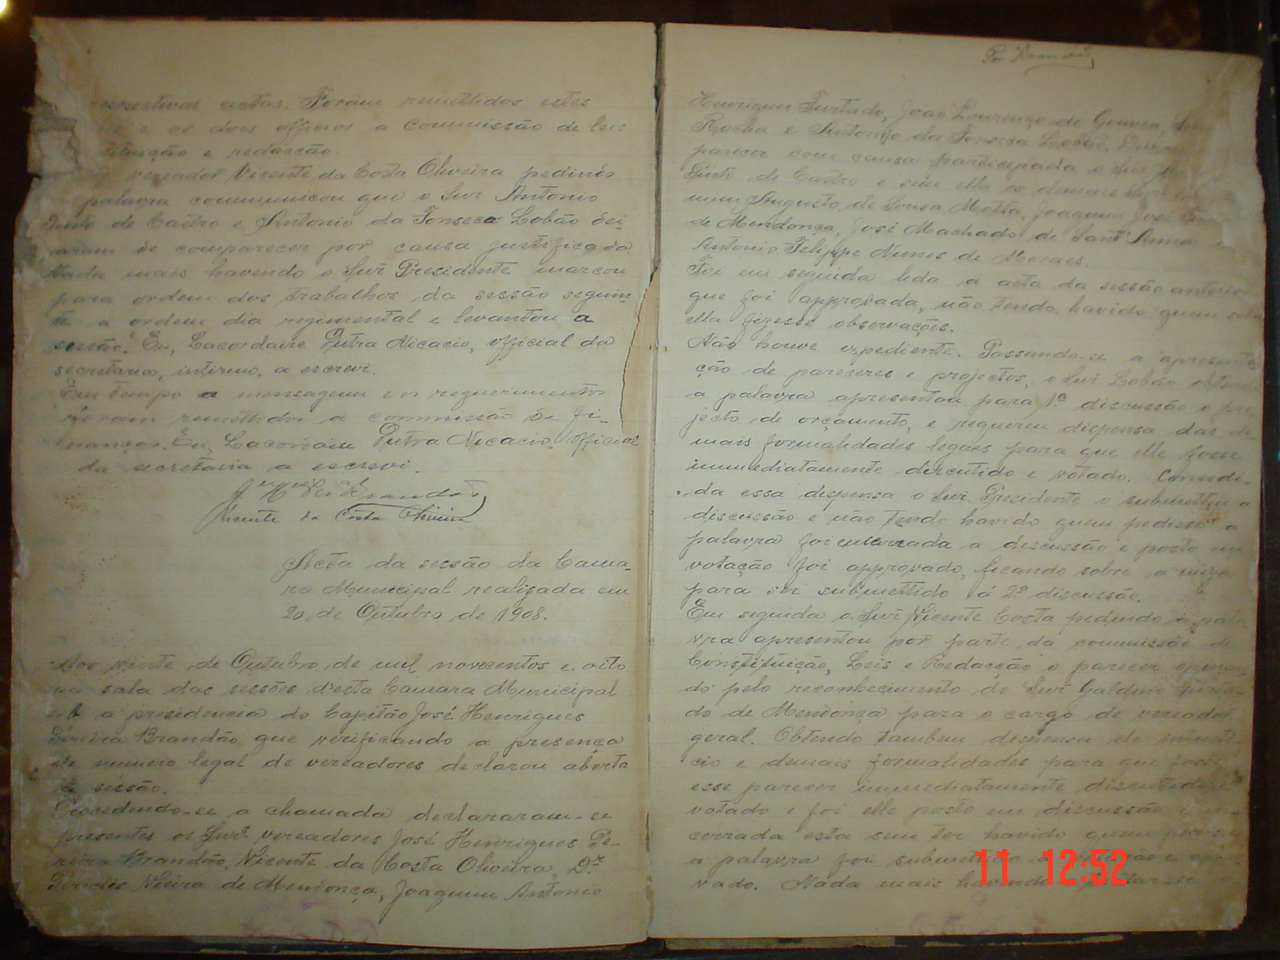 respectivas actas. Foram remettidos estes
e os dois officios a commissão de leis
tituição e redacção.
vereador Vicente da Costa Oliveira pedindo
palavra communicou que o Snr Antonio
Pinto de Castro e Antonio da Fonseca Lobão dei-
xaram de comparecer por causa justificada
Nada mais havendo o Snr Presidente marcou
para ordem dos trabalhos da sessão seguin
te a ordem dia regimental e levantou a
sessão. Eu, Lacordaire Dutra Nicacio, official da
secretaria, interino, a escrevi.
Em tempo a mensagem e os requerimentos
foram remettidos a commissão de fi-
nanças. Eu, Lacordaire Dutra Nicacio official
da secretaria a escrevi.
Vicente da Costa Oliveira
Acta da sessão da Cama-
ra Municipal realisada em
20 de Outubro de 1908.
Aos vinte de Outubro de mil novecentos e oito
na sala das sessões d'esta Camara Municipal
sob a presidencia do Capitão José Henriques
Pereira Brandão que verificando a presença
de numero legal de vereadores declarou aberta
a sessão.
Procedendo-se a chamada declararam-se
presentes os Snrs vereadores José Henriques Pe-
reira Brandão, Vicente da Costa Oliveira, Dr.
Vieira de Mendonça, Joaquim Antonio
Henriques Furtado, João Lourenço de Gouvea,
Rocha e Antonio da Fonseca Lobão. Deixou
parecer com causa participada o Snr
Pinto de Castro e sem ella os demais Snrs
Augusto de Sousa Motta, Joaquim José
de Mendonça, José Machado de Sant'Anna
Antonio Felippe Nunes de Moraes.
Foi em seguida lida a acta da sessão anterior
que foi approvada, não tendo havido quem sobre
ella fizesse observações.
Não houve expediente. Passando-se a apresenta
ção de pareceres e projectos, o Snr Lobão obtendo
a palavra apresentou para 1ª discussão o pro
jecto de orçamento, e requereu dispensa das de
mais formalidades legaes para que elle fosse
immediatamente discutido e votado. Concedi-
da essa dispensa o Snr. Presidente o submetteu a
discussão e não tendo havido quem pedisse a
palavra foi encerrada a discussão e posto em
votação foi approvado, ficando sobre a mesa
para ser submettido á 2ª discussão.
Em seguida o Snr Vicente Costa pedindo a pala
vra apresentou por parte da commissão de
Constituição, Leis e Redacção o parecer
do pelo reconhecimento do Snr Galdino Furta
do de Mendonça para o cargo de vereador
geral. Obtendo tambem dispensa de intersti-
cio e demais formalidades para que fosse
esse parecer immediatamente discutido e
votado e foi elle posto em discussão en-
cerrada esta sem ter havido quem pedisse
a palavra foi submettido a votação e appro
vado. Nada mais havendo a tratar-se
11 12:52